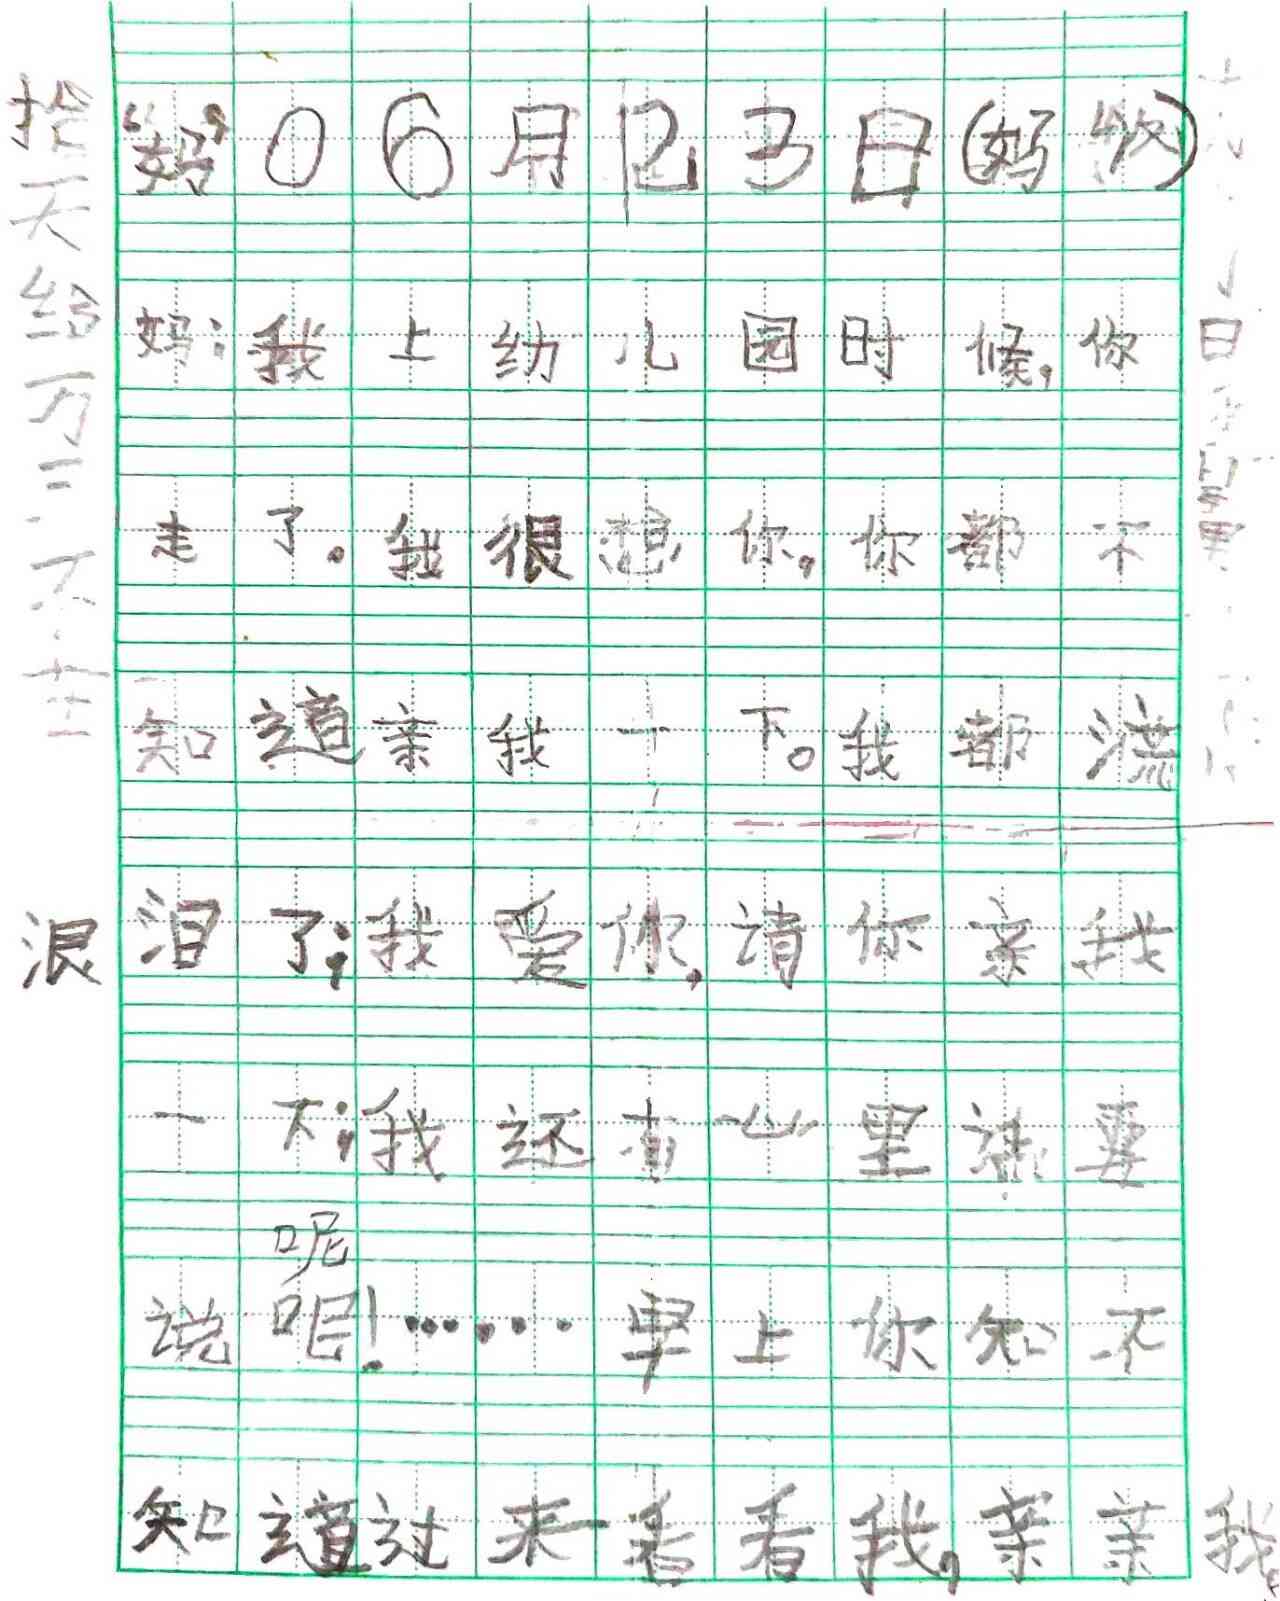 “妈”06月23日(妈收)
妈：我上幼儿园时候，你
走了。我很想你，你都不
知道亲我一下。我都流
泪了；我爱你，请你亲我
浪
一下；我还有心里话要
呢
说呢！……早上你知不
知道过来看看我，亲亲我。